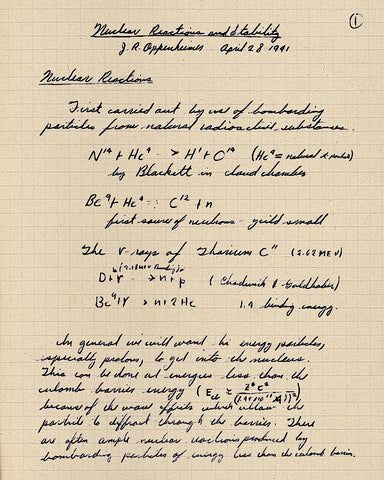 ①
Nuclear Reactions and Stability
J. R. Oppenheimer April 28 1941
Nuclear Reactions
First carried out by use of bombarding
particles from natural radioactive substances.
N¹⁴ + He⁴ → H¹ + O¹⁷ (He⁴ = natural α particles)
by Blackett in cloud chamber
Be⁹ + He⁴ : C¹² + n
first source of neutrons - yield small
The γ-rays of Thorium C'' (2.62 MEV)
D + γ → n + p (Chadwick & Goldhaber)
Be⁹ + γ → n + 2He 1.9 binding energy.
In general we will want hi energy particles,
especially protons, to get into the nucleus.
This can be done at energies less than the
culomb barrier energy
because of the wave effects which allow the
particle to diffract through the barrier. There
are often ample nuclear reactions produced by
bombarding particles of energy less than the culomb barrier.